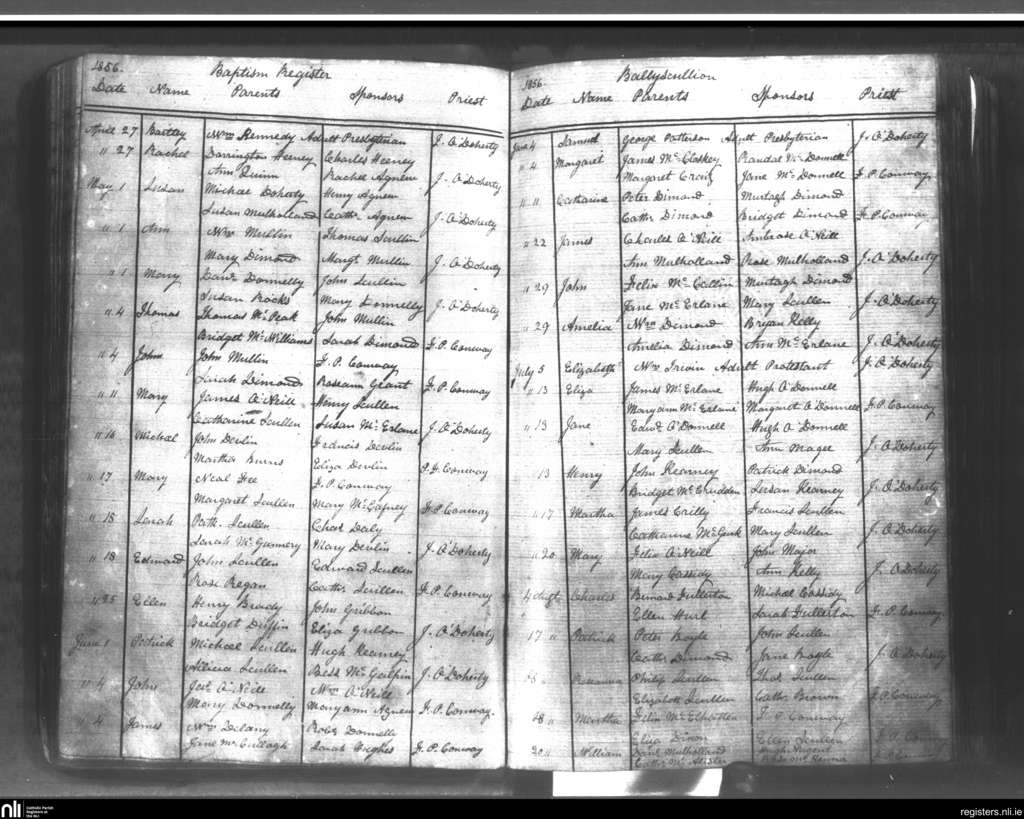 1856.
Baptism Register
Date Name Parents Sponsors Priest
April 27 Bartley Wm Kennedy Adult Presbyterian J. O'Doherty
" 27 Rachel Darrington Heeney Charles Heeney
Ann Quinn Rachel Agnew J. O'Doherty
May 1 Susan Michael Doherty Henry Agnew
Susan Mulholland Cathr Agnew J. O'Doherty
" 1 Ann Wm Mullin Thomas Scullin
Mary Dimond Margt Mullin J. O'Doherty
" 1 Mary Danl Donnelly John Scullin
Susan Rocks Mary Donnelly J. O'Doherty
" 4 Thomas Thomas McPeak John Mullin
Bridget McWilliams Sarah Dimond F. P. Conway
" 4 John John Mullin F. P. Conway
Sarah Dimond Roseann Grant F. P. Conway
" 11 Mary James O'Neill Henry Scullen
Catharine Scullen Susan McErlane J. O'Doherty
" 16 Michael John Devlin Francis Devlin
Martha Burns Eliza Devlin P. F. Conway
" 17 Mary Neal Gee F. P. Conway
Margaret Scullen Mary McGafney F. P. Conway
" 18 Sarah Patk. Scullen Chas Daly
Sarah McGunnery Mary Devlin J. O'Doherty
" 18 Edward John Scullen Edward Scullen
Rose Regan Cathr Scullen F. P. Conway
" 25 Ellen Henry Brady John Gribbon
Bridget Duffin Eliza Gribbon J. O'Doherty
June 1 Patrick Michael Scullen Hugh Kearney
Allicia Scullen Bess McGulpin J. O'Doherty
" 4 John Jas. O'Neill Wm O'Neill
Mary Donnelly Maryann Agnew F. P. Conway.
4 James Wm Delany Robt Donnelly
Jane McCullagh Sarah Hughes F. P. Conway
1856 Ballyscullion
Date Name Parents Sponsors Priest
June 4 Samuel George Patterson Adult Presbyterian J. O'Doherty
" 4 Margaret James McCloskey Randal McDonnell
Margaret Craig Jane McDonnell F. P. Conway
" 11 Catharine Peter Dimond Murtagh Dimond
Cathr Dimond Bridget Dimond F. P. Conway
" 22 James Charles O'Neill Ambrose O'Neill
Ann Mulholland Rose Mulholland J. O'Doherty
" 29 John Felix McCallin Murtagh Dimond
Jane McErlane Mary Scullen J. O'Doherty
" 29 Amelia Wm Dimond Bryan Kelly
Amelia Dimond Ann McErlane J. O'Doherty
July 5 Elizabeth Wm Irwin Adult Protestant J. O'Doherty
" 13 Eliza James McErlane Hugh O'Donnell
Maryann McErlane Margaret O'Donnell F. P. Conway
" 13 Jane Edwd O'Donnell Hugh O'Donnell
Mary Scullen Ann Magee J. O'Doherty
13 Henry John Kearney Patrick Dimond
Bridget McCrudden Susan Kearney J. O'Doherty
" 17 Martha James Crilly Francis Scullen
Catharine McGurk Mary Scullen J. O'Doherty
" 20 Mary Felix O'Neill John Major
Mary Cassidy Ann Kelly J. O'Doherty
4 Augt Charles Bernard Fullerton Michael Cassidy
Ellen Hurl Sarah Fullerton F. P. Conway
17 " Patrick Peter Boyle John Scullen
Cathr Dimond Jane Boyle J. O'Doherty
Roseanna Philip Scullen Thos Scullen
Elizabeth Scullen Cathr Brown F. P. Conway
18 " Martha Felix McElhatton F. P. Conway
Eliza Dixon Ellen Scullen
20 " William Danl Mulholland Hugh Nugent
Cathr McAlister
nli
Catholic Parish
Registers at
the NLI
registers.nli.ie